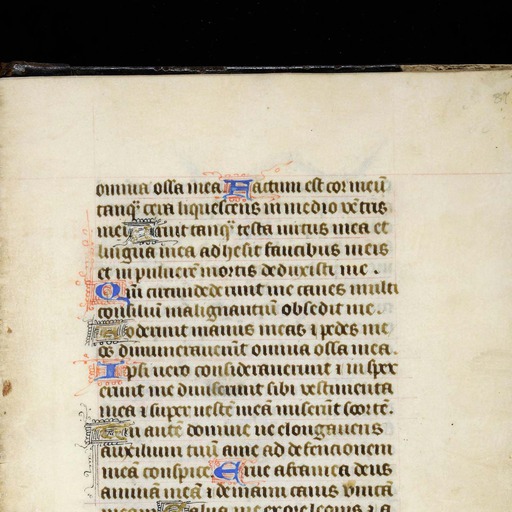 omnia ossa mea. Factum est cor meū
tanq̄ cera liquescens in medio vētris
mei. Aruit tanq̄ testa virtus mea et
lingua mea adhesit faucibus meis
et in pulverē mortis deduxisti me.
Qm̄ circumdederunt me canes multi
consilium malignantiū obsedit me.
Foderunt manus meas ⁊ pedes me
os dinumeraverūt omnia ossa mea.
Ipsi vero consideraverunt ⁊ inspex
erunt me diviserunt sibi vestimenta
mea ⁊ super vestē meā miserūt sortē.
Tu autē domine ne elongaveris
auxilium tuū a me ad defencionem
meā conspice. Erue a framea deus
animā meā ⁊ de manu canis vnicā
meam. Salva me ex ore leonis ⁊ a